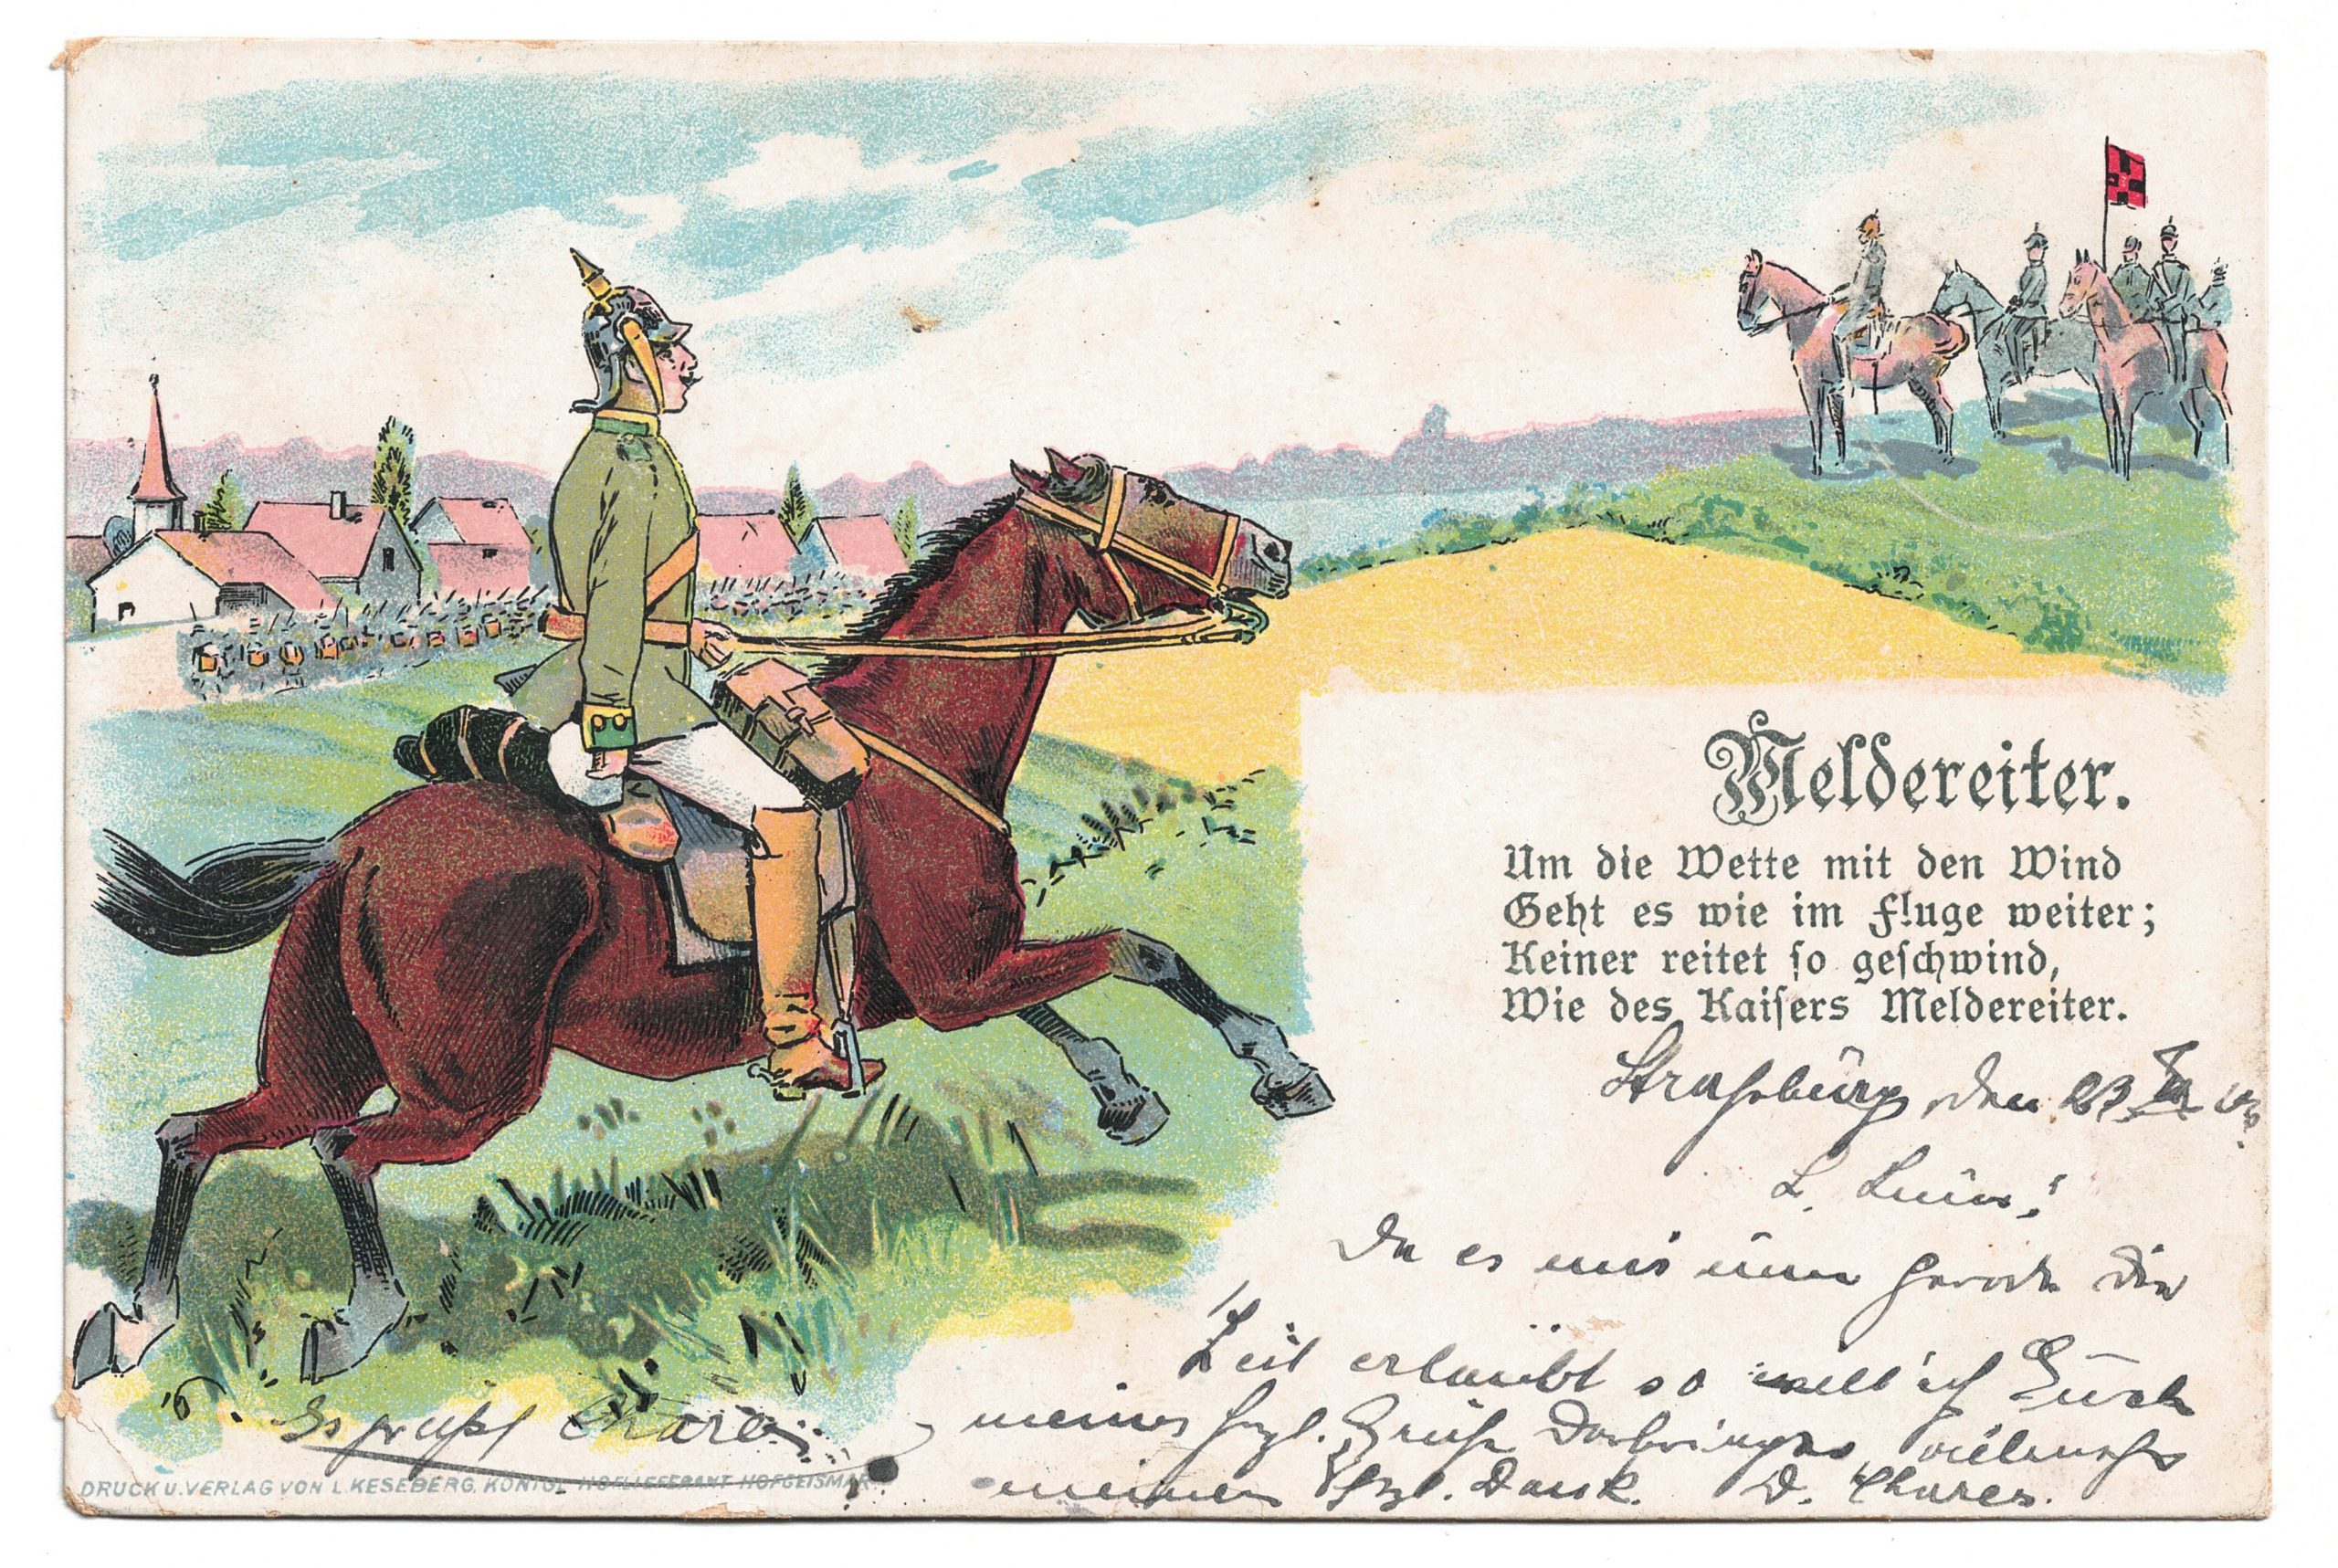 Meldereiter.
Um die Wette mit den Wind
Geht es wie im Fluge weiter;
Keiner reitet so geschwind,
Wie des Kaisers Meldereiter.
Straßburg, den 23
L.
Da es mir nun gerade die
Zeit erlaubt so will ich Euch
meine hrzl. Grüße
meinen hrzl. Dank. D.
Es grüßt
DRUCK U. VERLAG VON L. KESEBERG, KÖNIGL HOFLIEFERANT HOFGEISMAR